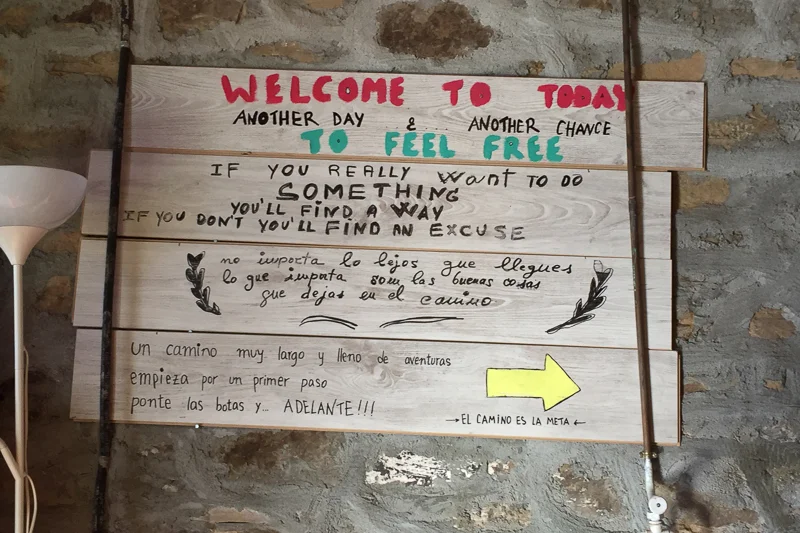 WELCOME TO TODAY
ANOTHER DAY & ANOTHER CHANCE
TO FEEL FREE
IF YOU REALLY Want TO DO
SOMETHING
YOU'LL FIND A WAY
IF YOU DON'T YOU'LL FIND AN EXCUSE
no importa lo lejos que llegues
lo que importa som las buenas cosas
que dejas en el camino
un camino muy largo y lleno de aventuras
empieza por un primer paso
ponte las botas y... ADELANTE!!!
→EL CAMINO ES LA META←